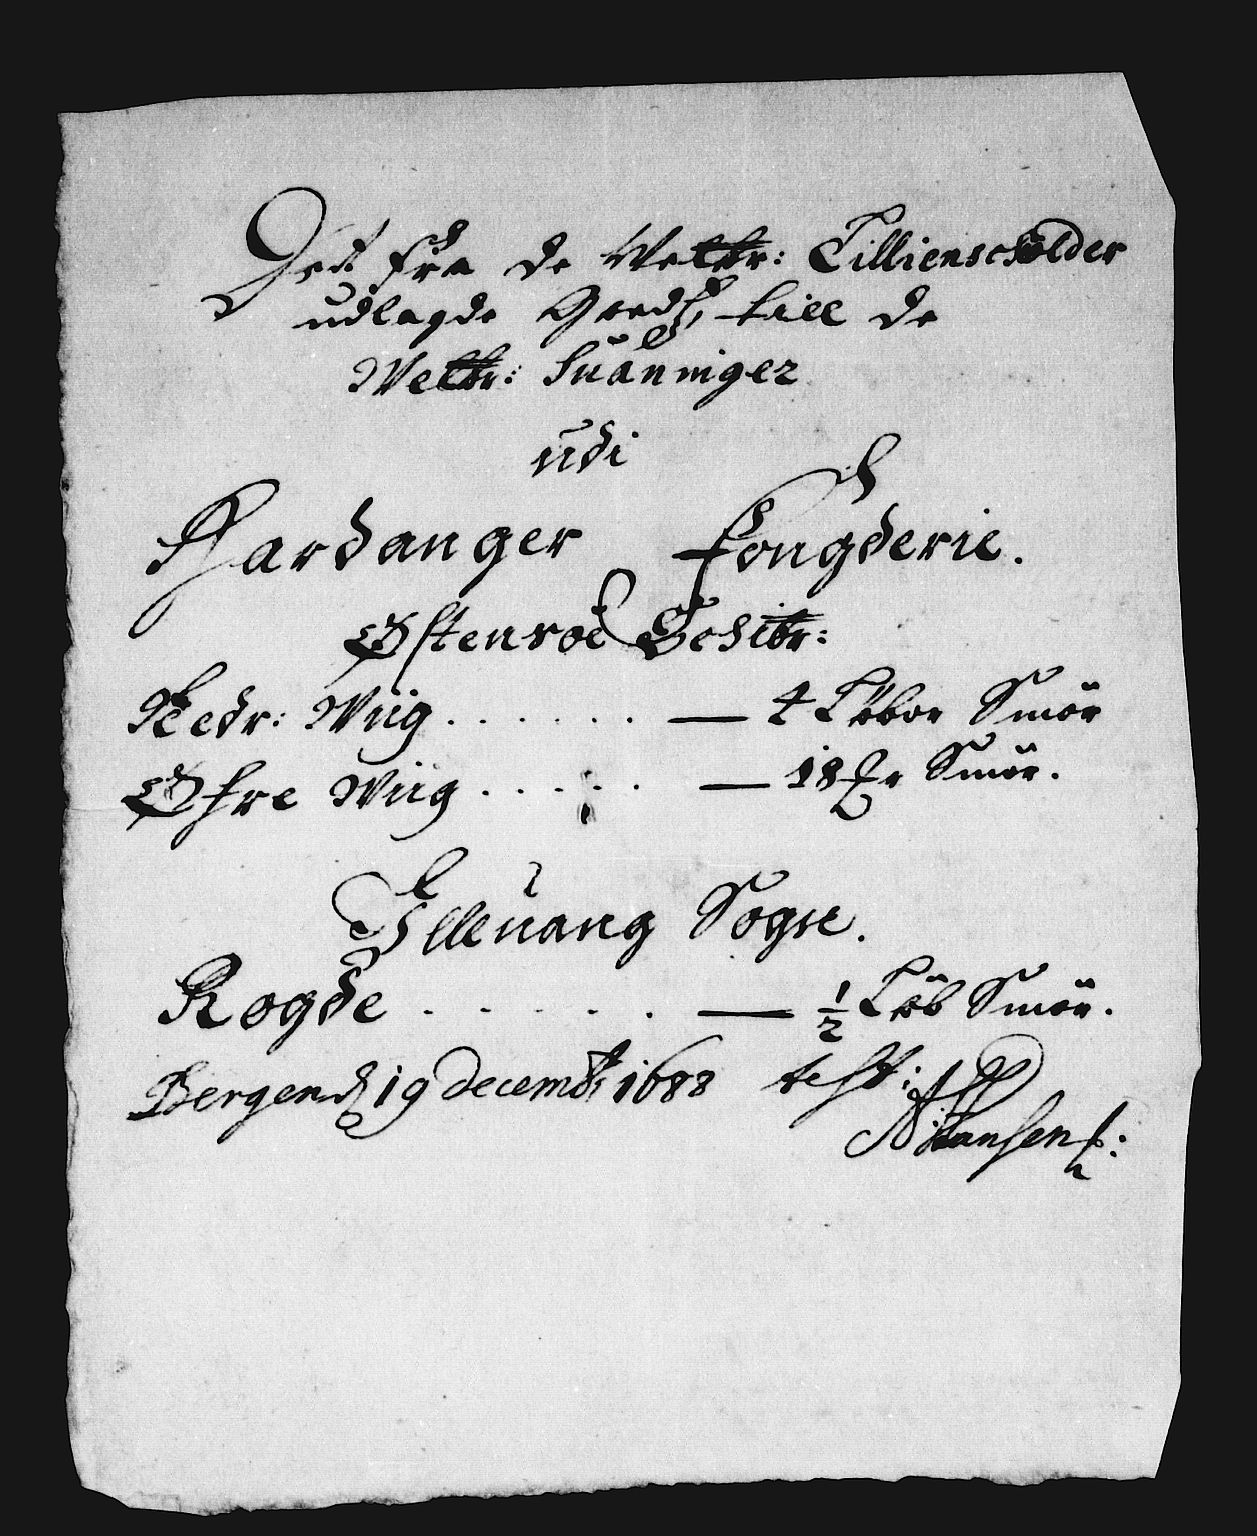 Det fra de Weltbr: Lillienscholder
udlagde Goeds, till de
Weltbr: Suäninger
udi
Hardanger Fougderie.
Østensøe Schibr:
Nedr: Wiig . . . . . . — 4 Løber Smör
Øfre Wiig . . . . . — 18 Mr Smör.
Ullenuang Sogn.
Rogde . . . . . — 1/2 Løb Smör.
Bergen d 19 decembr, 1688 test:
NHansen